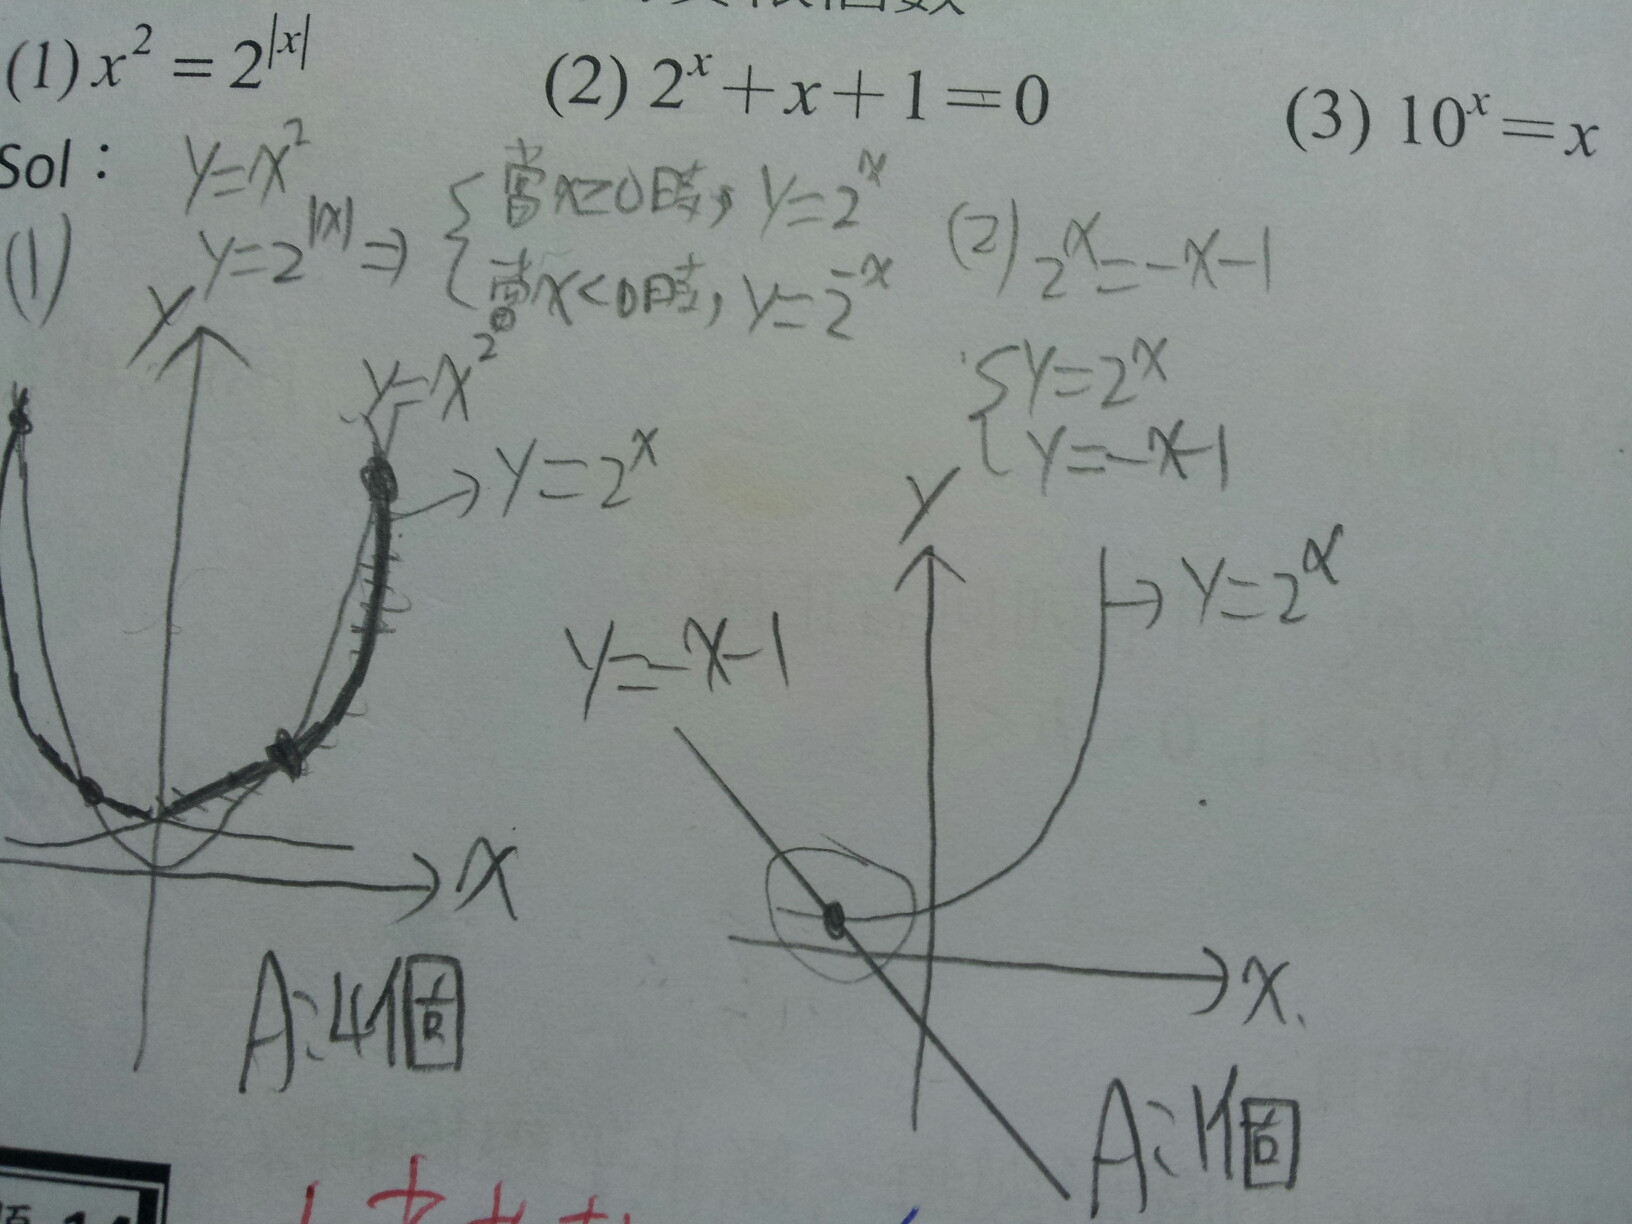 (1) x² = 2^|x| (2) 2^x + x + 1 = 0 (3) 10^x = x
Sol：
(1) y=x²
y=2^|x| ⇒ { 當x≥0時, y=2^x
當x<0時, y=2^-x
y
y=x²
→ y=2^x
x
A:4個
(2) 2^x=-x-1
{ y=2^x
y=-x-1
y
→ y=2^x
y=-x-1
x
A:1個